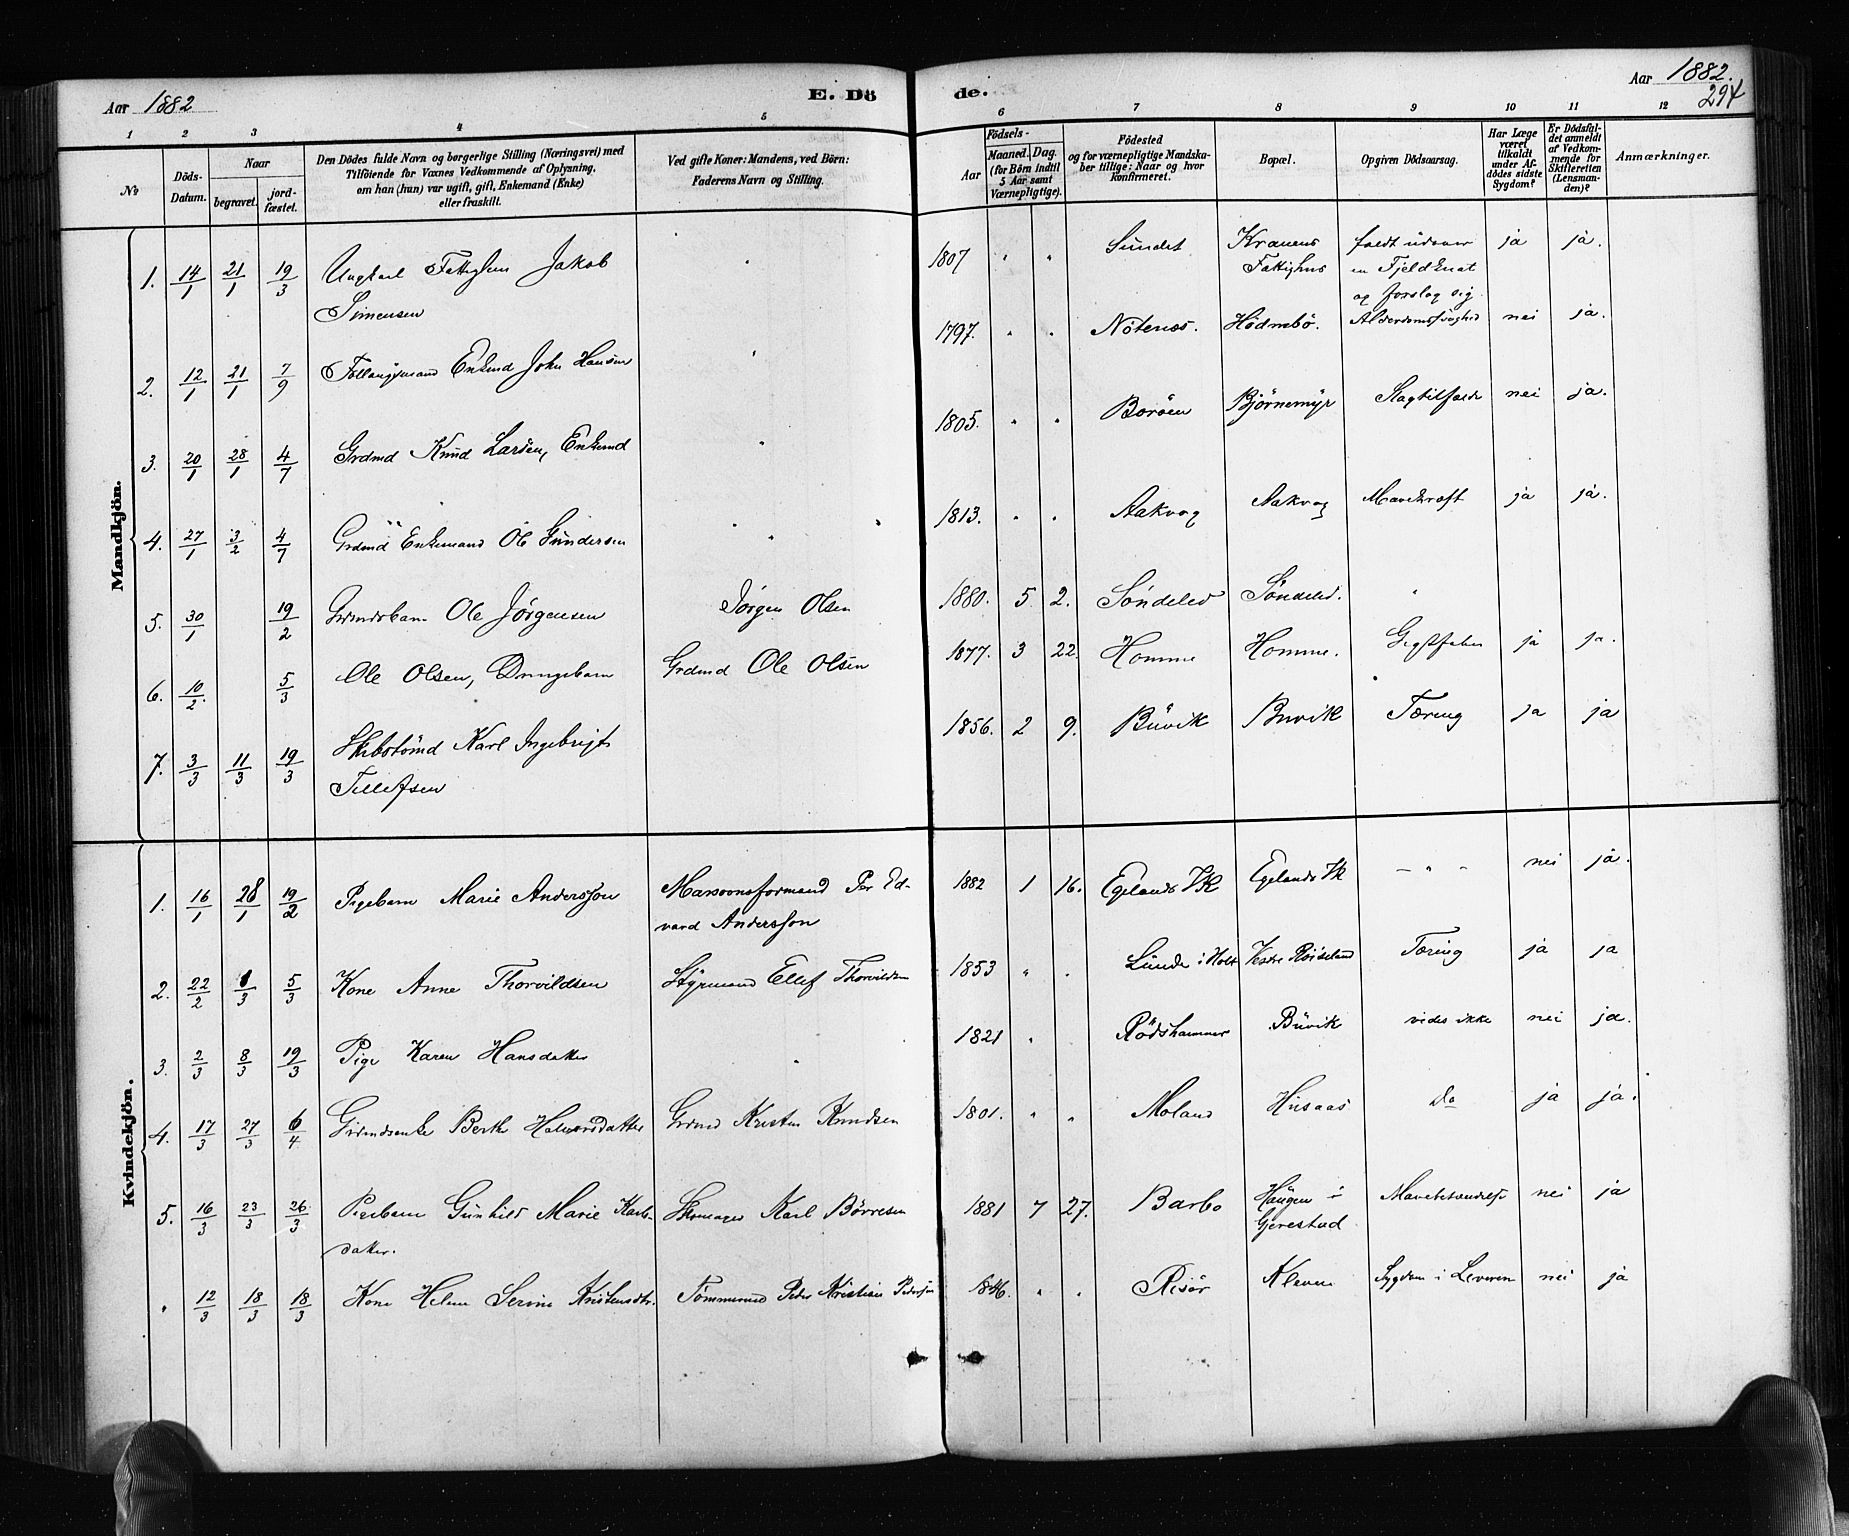 Aar 1882
E. Dö
de.
Aar 1882.
294
1 2 3 4 5 6 7 8 9 10 11 12
No
Döds-
Datum.
Naar
begravet.
jord-
fæstet.
Den Dödes fulde Navn og borgerlige Stilling (Næringsvei) med
Tilföiende for Voxnes Vedkommende af Oplysning,
om han (hun) var ugift, gift, Enkemand (Enke)
eller fraskilt.
Ved gifte Koner: Mandens, ved Börn:
Faderens Navn og Stilling.
Födsels-
Aar
Maaned. Dag.
(for Börn indtil
5 Aar samt
Værnepligtige).
Födested
og for værnepligtige Mandska-
ber tillige: Naar og hvor
konfirmeret.
Bopæl.
Opgiven Dödsaarsag.
Har Læge
været
tilkaldt
under Af-
dödes sidste
Sygdom?
Er Dödsfal-
det anmeldt
af Vedkom-
mende for
Skifteretten
(Lensman-
den)?
Anmærkninger.
Mandkjön.
1. 14/1 21/1 19/3 Ungkarl Fattiglem Jakob " 1807 " " Sundet Kranens faldt udover ja ja.
Simensen Fattighus en Fjeldknat
og forslog sig
2. 12/1 21/1 7/9 Enkemd John Hansen " 1797. " " Nötenæs. Hödnebö. Alderdomssvaghed nei ja.
3. 20/1 28/1 4/7 Grdmd Knud Larsen, Enkemd " 1805. " " Boröen Björnemyr Slagtilfælde nei ja.
4. 27/1 3/2 4/7 Grdmd Enkemand Ole Gundersen " 1813. " " Aakvag Aakvag ja ja.
5. 30/1 19/2 Ole Jörgensen Jörgen Olsen 1880. 5 2. Söndeled Söndeled. "
6. 10/2. 5/3 Ole Olsen, Drengebarn Grdmd Ole Olsen 1877. 3 22. Homme Homme. Gigtfeber ja ja.
7. 3/3 11/3 19/3 Karl Ingebrigt 1856. 2 9. Buvik Buvik Tæring ja ja
Tellefsen
Kvindekjön.
1. 16/1 28/1 19/2 Pigebarn Marie Andersson Masovnsformand Per Ed- 1882 1 16. Egelands Vk Egelands Vk - " - nei ja.
vard Andersson
2. 22/2 1/3 5/3 Kone Anne Thorvildsen Styrmand Ellef Thorvildsen 1853 " " Lunde i Holt Vestre Röiseland Tæring ja ja
3. 2/3 8/3 19/3 Pige Karen Hansdatter " 1821 " Rödshammer Buvik vides ikke nei ja.
4. 17/3 27/3 6/4 Grdmdsenke Berthe Halvorsdatter Grdmd Kristen Knudsen 1801. " " Moland Husaas Do ja ja.
5. 16/3 23/3 26/3 Pigebarn Gunhild Marie Karls- Skomager Karl Börresen 1881 7 27. Barbo Haugen i nei ja
datter. Gjerestad
" 12/3 18/3 18/3 Kone Helene Serine Kristensdtr. Tömmermd Peder Kristian Pedersen 1846. " " Risör Kleven Sygdom i Leveren nei ja